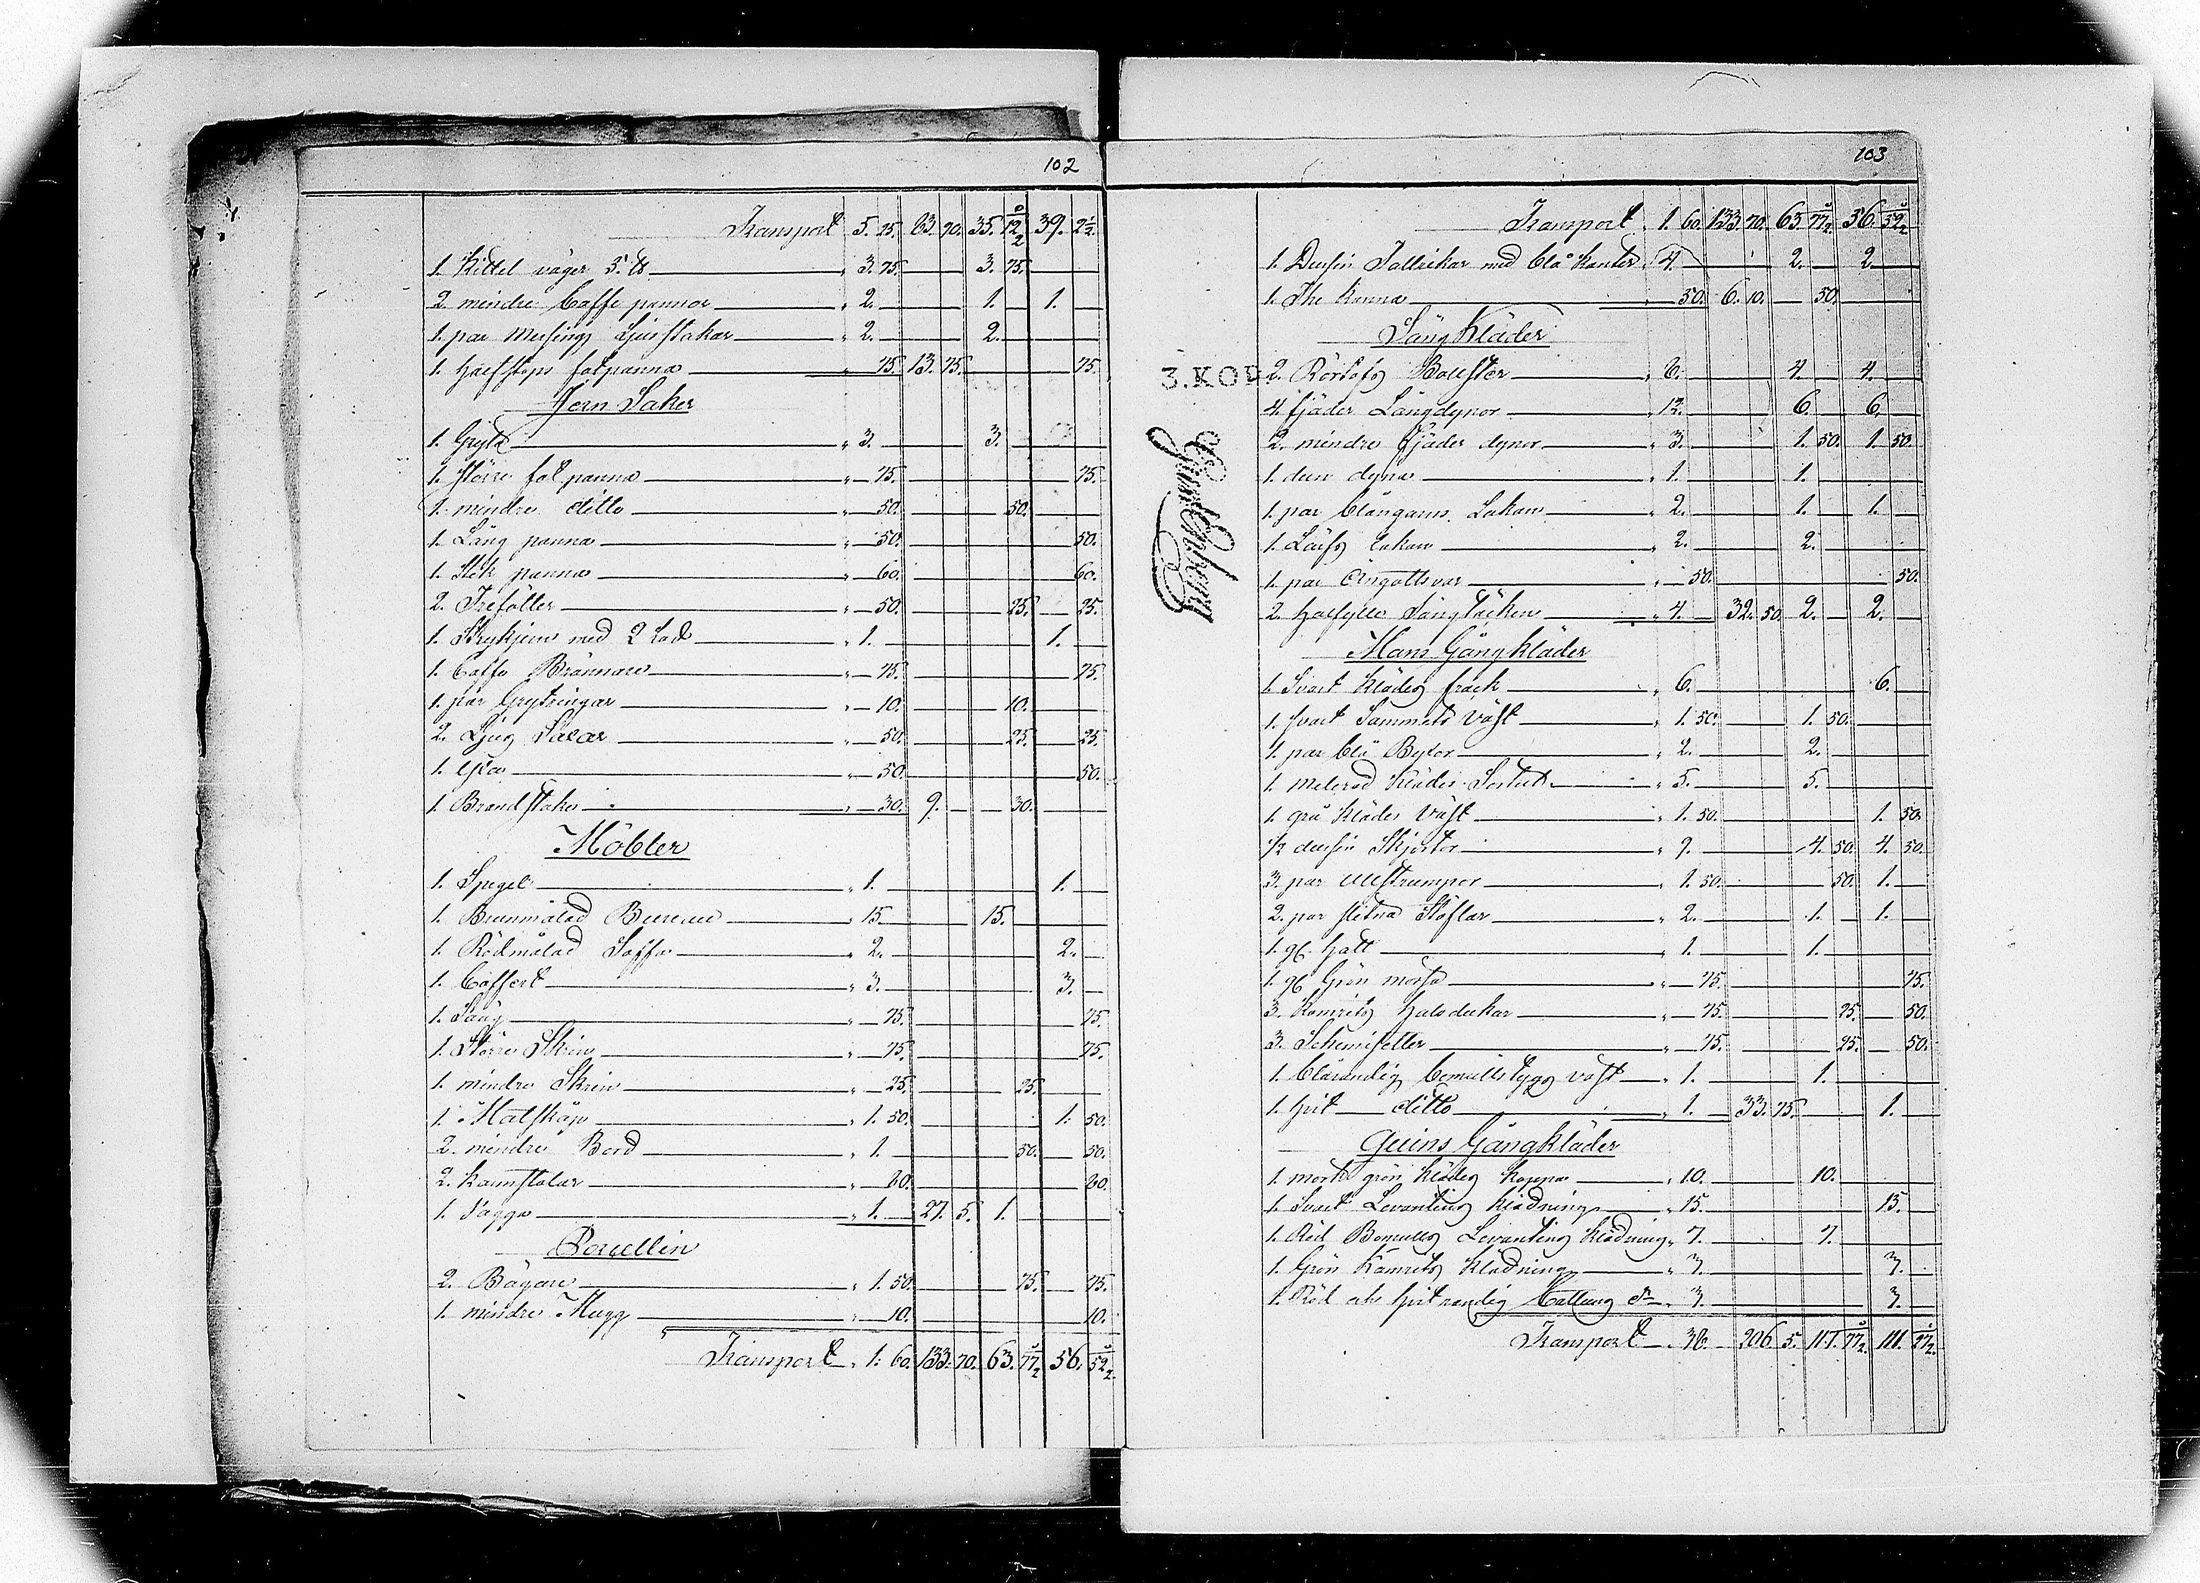 102
Transport 5. 25. 83. 70. 35. 12½ 39. 2½
1. Kittel väger 5. ℔ 3. 75. 3. 75.
2. mindre Caffe pannor 2. 1. 1.
1. par Messings Ljusstakar 2. 2.
1. Halfstops fotpanna 75. 13. 75. 75.
Jern Saker
1. Gryta 3. 3.
1. större fotpanna 75. 75.
1. mindre ditto 50. 50.
1. Lång panna 50. 50.
1. Stek panna 60. 60.
2. Trefötter 50. 25. 25.
1. Strykjern med 2 Lod 1. 1.
1. Caffe Brännare 75. 75.
1. par Grytringar 10. 10.
2. Ljus Saxar 50. 25. 25.
1. Yxa 50. 50.
1. Brandstake 30. 9. 30.
Möbler
1. Spegel 1. 1.
1. Brunmålad Bureau 15. 15.
1. Rödmålad Soffa 2. 2.
1. Coffert 3. 3.
1. Säng 75. 75.
1. Större Skrin 75. 75.
1. mindre Skrin 25. 25.
1. Matskåp 1. 50. 1. 50.
2. mindre Bord 1. 50. 50.
2. Karmstolar 80. 80.
1. Vagga 1. 27. 5. 1.
Porcellin
2. Bägare 1. 50. 75. 75.
1. mindre Mugg 10. 10.
Transport 1. 60. 133. 70. 63. 77½ 56. 52½
103
Transport 1. 60. 133. 70. 63. 77½ 56. 52½
1. Dussin Tallrikar med blå kanter 4. 2. 2.
1. The Kanna 50. 6. 10. 50.
Sängkläder
3. KOP
2. Bolster 8. 4. 4.
4. fjäder Långdynor 12. 6. 6.
2. mindre fjäder dynor 3. 1. 50. 1. 50.
1. dun dyna 1. 1.
1. par blångarns Lakan 2. 1. 1.
1. Lärfts Lakan 2. 2.
1. par Örngottsvar 50. 50.
2. Halfylle Sängtäcken 4. 32. 50. 2. 2.
Mans Gångkläder
1. Svart Klädes frack 6. 6.
1. svart Sammets Väst 1. 50. 1. 50.
1. par blå Byxor 2. 2.
1. Melerad Klädes Sortut 5. 5.
1. grå Klädes Väst 1. 50. 1. 50.
½ dussin Skjortor 9. 4. 50. 4. 50.
3. par ullstrumpor 1. 50. 50. 1.
2. par slitna Stöflar 2. 1. 1.
1. gl. Hatt 1. 1.
1. gl. Grön mössa 75. 75.
3. Kamrits Halsdukar 75. 25. 50.
3. Schemisetter 75. 25. 50.
1. blårandig bomullstygs väst 1. 1.
1. hvit ditto 1. 33. 75. 1.
Quins Gångkläder
1. mörk grön Klädes Kappa 10. 10.
1. Svart Levantins Klädning 15. 15.
1. Röd Bomulls Levantins Klädning 7. 7.
1. Grön Kamrits Klädning 3. 3.
1. Röd och hvitrandig Cattuns do 3. 3.
Transport 38. 206. 5. 117. 77½ 111. 27½